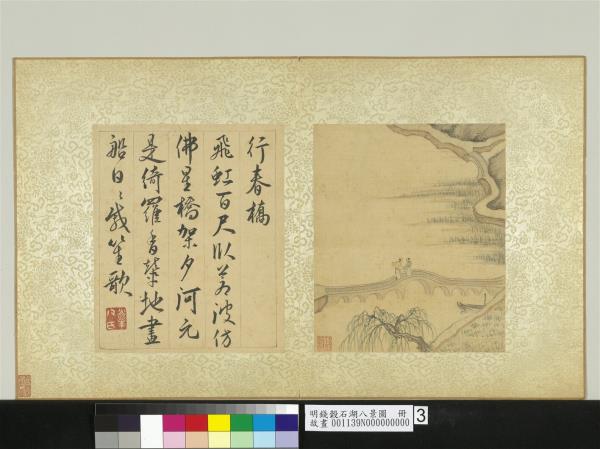 行春橋
飛虹百尺臥蒼波仿
佛星橋架夕河元
是綺羅香葬地畫
船日〻載笙歌
明錢穀石湖八景圖 冊
故畫 001139N000000000
3